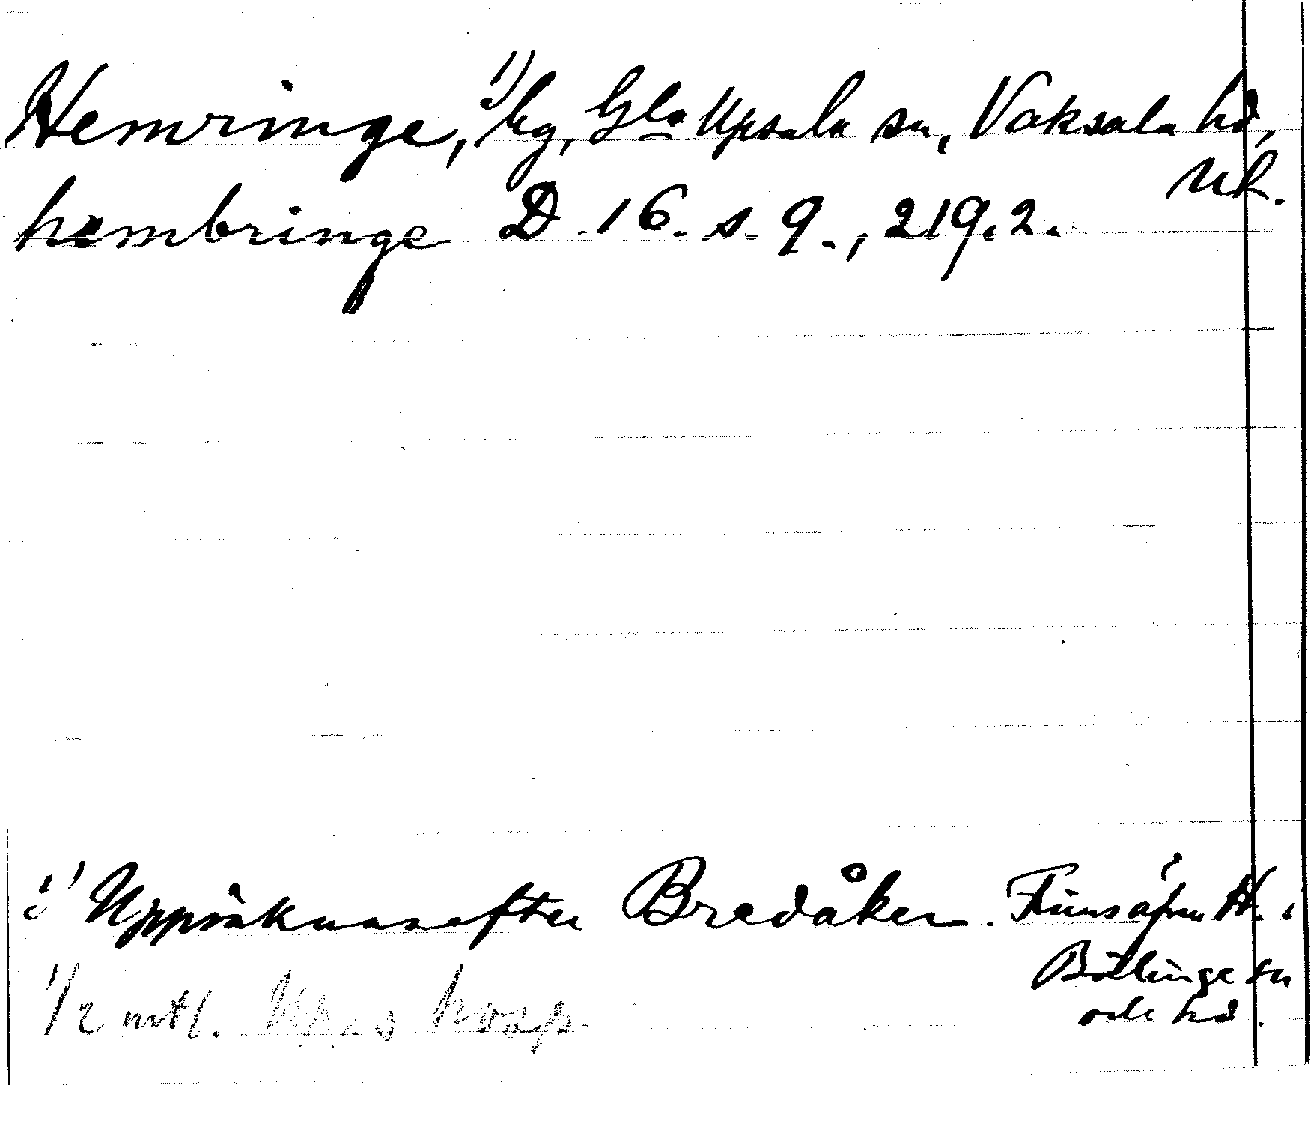 Hemringe, 1) by, Gla Upsala sn, Vaksala hd,
Uk.
hembringe D 16. s. 9., 219.2.
1) Uppräknas efter Bredåker. Finns även H. i
Bälinge sn
och hd.
1/2 mtl.